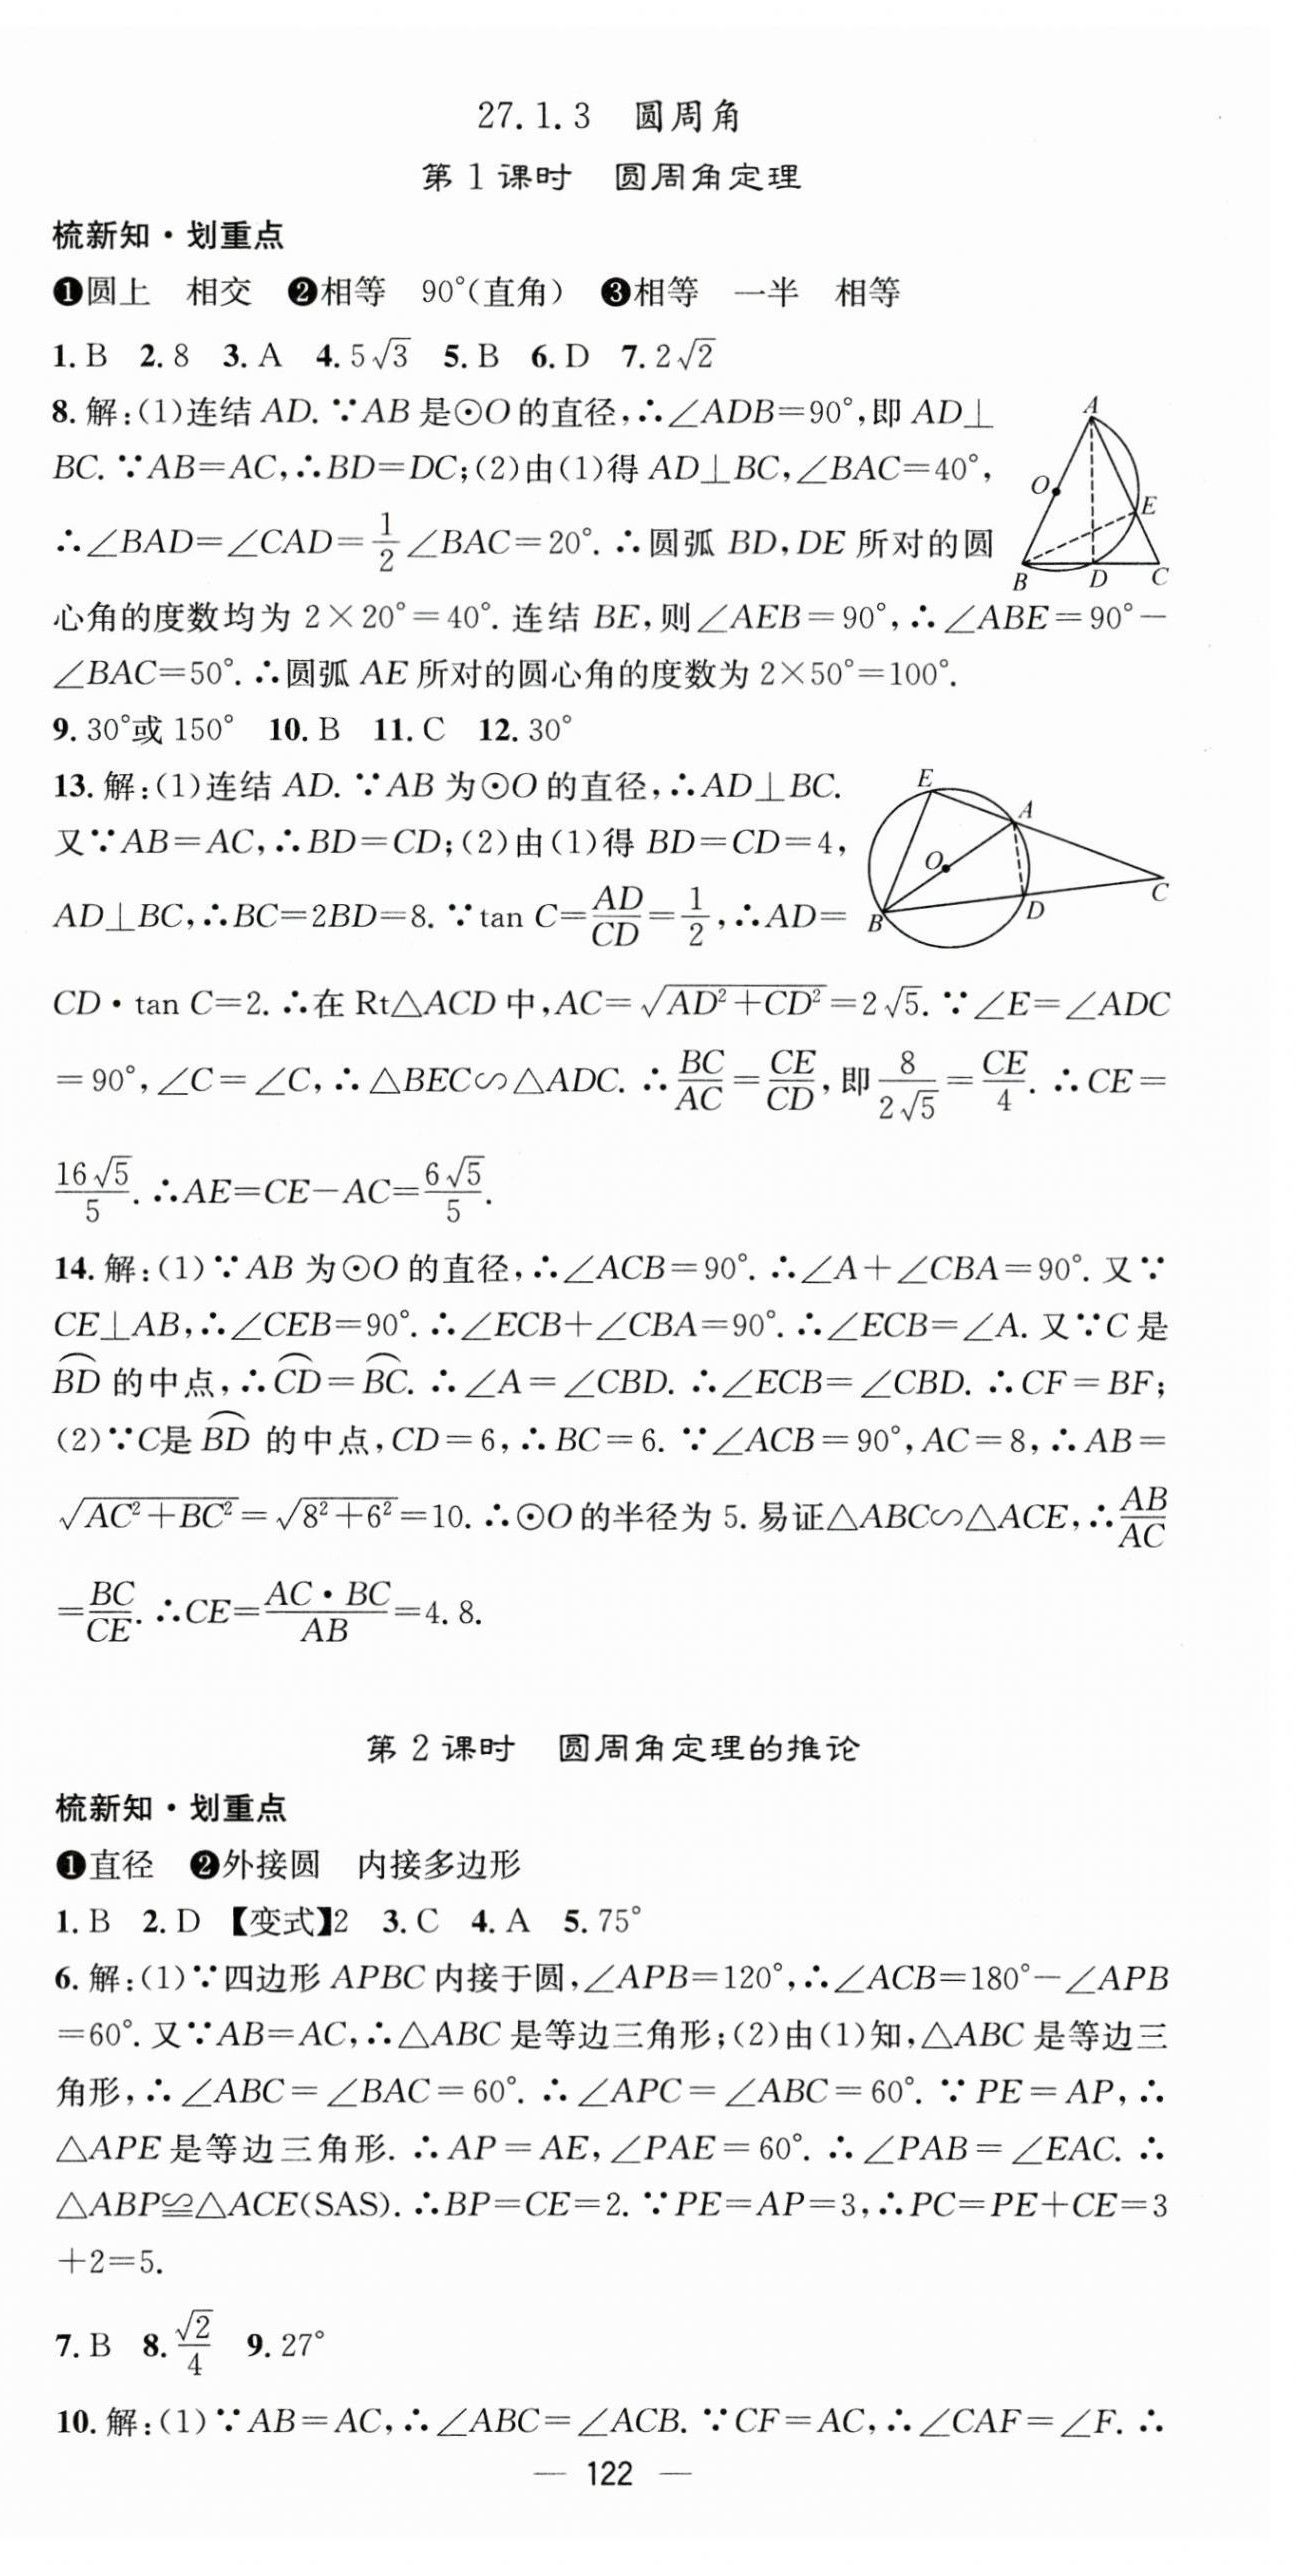 27.1.3 圆周角
第1课时 圆周角定理
梳新知·划重点
❶圆上 相交 ❷相等 90°(直角) ❸相等 一半 相等
1.B 2.8 3.A 4.5√3 5.B 6.D 7.2√2
8.解:(1)连结AD.∵AB是⊙O的直径,∴∠ADB=90°,即AD⊥
BC.∵AB=AC,∴BD=DC;(2)由(1)得AD⊥BC,∠BAC=40°,
∴∠BAD=∠CAD=1/2∠BAC=20°.∴圆弧BD,DE所对的圆
心角的度数均为2×20°=40°.连结BE,则∠AEB=90°,∴∠ABE=90°-
∠BAC=50°.∴圆弧AE所对的圆心角的度数为2×50°=100°.
A
O
E
B D C
9.30°或150° 10.B 11.C 12.30°
13.解:(1)连结AD.∵AB为⊙O的直径,∴AD⊥BC.
又∵AB=AC,∴BD=CD;(2)由(1)得BD=CD=4,
AD⊥BC,∴BC=2BD=8.∵tan C=AD/CD=1/2,∴AD=
E
A
O
C
B D
CD·tan C=2.∴在Rt△ACD中,AC=√(AD²+CD²)=2√5.∵∠E=∠ADC
=90°,∠C=∠C,∴△BEC∽△ADC.∴BC/AC=CE/CD,即8/(2√5)=CE/4.∴CE=
16√5/5.∴AE=CE-AC=6√5/5.
14.解:(1)∵AB为⊙O的直径,∴∠ACB=90°.∴∠A+∠CBA=90°.又∵
CE⊥AB,∴∠CEB=90°.∴∠ECB+∠CBA=90°.∴∠ECB=∠A.又∵C是
⌒BD的中点,∴⌒CD=⌒BC.∴∠A=∠CBD.∴∠ECB=∠CBD.∴CF=BF;
(2)∵C是⌒BD的中点,CD=6,∴BC=6.∵∠ACB=90°,AC=8,∴AB=
√(AC²+BC²)=√(8²+6²)=10.∴⊙O的半径为5.易证△ABC∽△ACE,∴AB/AC
=BC/CE.∴CE=AC·BC/AB=4.8.
第2课时 圆周角定理的推论
梳新知·划重点
❶直径 ❷外接圆 内接多边形
1.B 2.D 【变式】2 3.C 4.A 5.75°
6.解:(1)∵四边形APBC内接于圆,∠APB=120°,∴∠ACB=180°-∠APB
=60°.又∵AB=AC,∴△ABC是等边三角形;(2)由(1)知,△ABC是等边三
角形,∴∠ABC=∠BAC=60°.∴∠APC=∠ABC=60°.∵PE=AP,∴
△APE是等边三角形.∴AP=AE,∠PAE=60°.∴∠PAB=∠EAC.∴
△ABP≌△ACE(SAS).∴BP=CE=2.∵PE=AP=3,∴PC=PE+CE=3
+2=5.
7.B 8.√2/4 9.27°
10.解:(1)∵AB=AC,∴∠ABC=∠ACB.∵CF=AC,∴∠CAF=∠F.∴
— 122 —